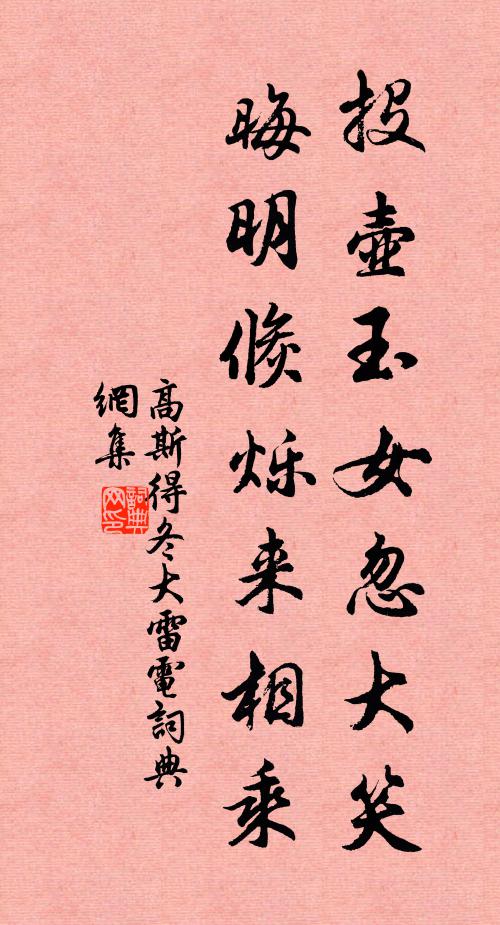 投壺玉女忽大笑
晦明倐烁来相乘
高斯得冬大雷電詞典
網集
詞典
网印